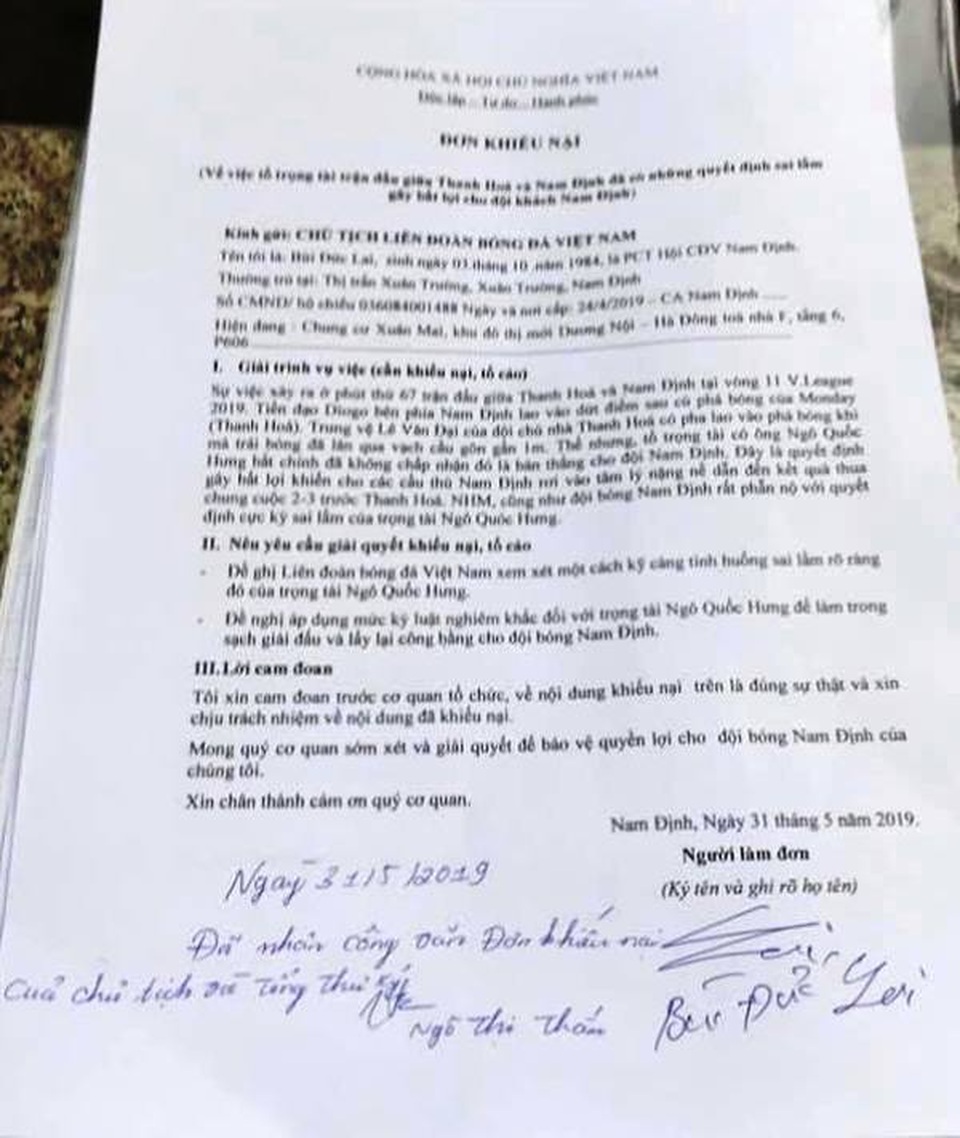 CỘNG HÒA XÃ HỘI CHỦ NGHĨA VIỆT NAM
Độc lập – Tự do – Hạnh phúc
ĐƠN KHIẾU NẠI
(Về việc tổ trọng tài trận đấu giữa Thanh Hoá và Nam Định đã có những quyết định sai lầm
gây bất lợi cho đội khách Nam Định)
Kính gửi: CHỦ TỊCH LIÊN ĐOÀN BÓNG ĐÁ VIỆT NAM
Tên tôi là: Bùi Đức Lai, sinh ngày 03 tháng 10 năm 1984, là PCT Hội CĐV Nam Định.
Thường trú tại: Thị trấn Xuân Trường, Xuân Trường, Nam Định
Số CMND/ hộ chiếu 036084001488 Ngày và nơi cấp: 24/4/2019 – CA Nam Định ......
Hiện đang : Chung cư Xuân Mai, khu đô thị mới Dương Nội – Hà Đông toà nhà F, tầng 6,
P606
I. Giải trình vụ việc (cần khiếu nại, tố cáo)
Sự việc xảy ra ở phút thứ 67 trận đấu giữa Thanh Hoá và Nam Định tại vòng 11 V.League
2019. Tiền đạo Diogo bên phía Nam Định lao vào dứt điểm sau cú phá bóng của Monday
(Thanh Hoá). Trung vệ Lê Văn Đại của đội chủ nhà Thanh Hoá có pha lao vào phá bóng khi
mà trái bóng đã lăn qua vạch cầu gôn gần 1m. Thế nhưng, tổ trọng tài có ông Ngô Quốc
Hưng bắt chính đã không chấp nhận đó là bàn thắng cho đội Nam Định. Đây là quyết định
gây bất lợi khiến cho các cầu thủ Nam Định rơi vào tâm lý nặng nề dẫn đến kết quả thua
chung cuộc 2-3 trước Thanh Hoá. NHM, cũng như đội bóng Nam Định rất phẫn nộ với quyết
định cực kỳ sai lầm của trọng tài Ngô Quốc Hưng.
II. Nêu yêu cầu giải quyết khiếu nại, tố cáo
- Đề nghị Liên đoàn bóng đá Việt Nam xem xét một cách kỹ càng tình huống sai lầm rõ ràng
đó của trọng tài Ngô Quốc Hưng.
- Đề nghị áp dụng mức kỷ luật nghiêm khắc đối với trọng tài Ngô Quốc Hưng để làm trong
sạch giải đấu và lấy lại công bằng cho đội bóng Nam Định.
III.Lời cam đoan
Tôi xin cam đoan trước cơ quan tổ chức, về nội dung khiếu nại trên là đúng sự thật và xin
chịu trách nhiệm về nội dung đã khiếu nại.
Mong quý cơ quan sớm xét và giải quyết để bảo vệ quyền lợi cho đội bóng Nam Định của
chúng tôi.
Xin chân thành cảm ơn quý cơ quan.
Nam Định, Ngày 31 tháng 5 năm 2019.
Người làm đơn
(Ký tên và ghi rõ họ tên)
Ngày 31/5/2019
Đã nhân công văn Đơn khiếu nại
Cuả chủ tịch và tổng thư ký
Ngô Thị Thắm
Bùi Đức Lai